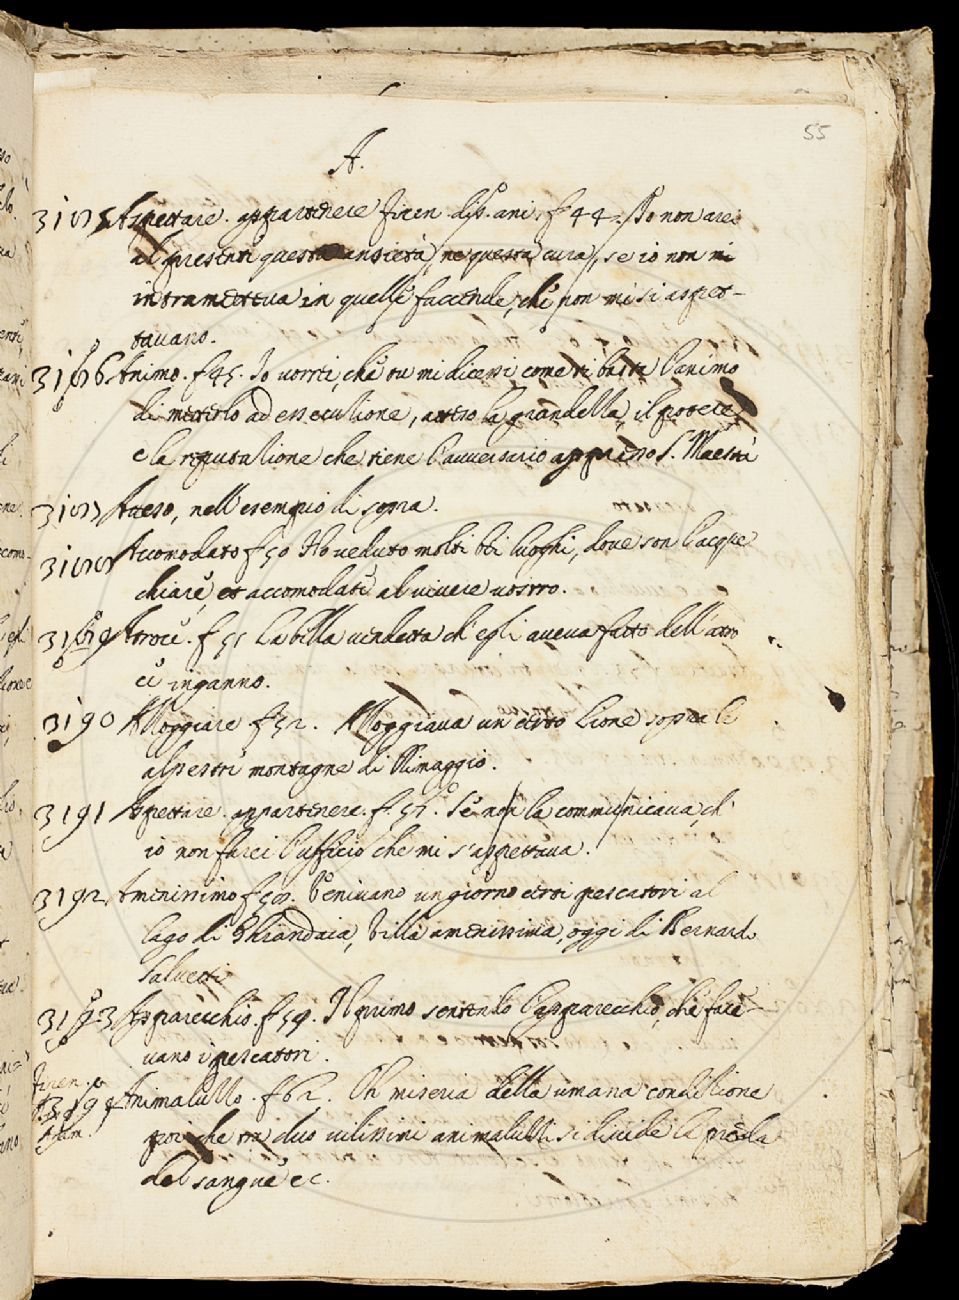 55
A.
3185 Aspettare. appartenere Firen. disp. ani. f. 44. Io non arei
al presente questa ansietà, ne questa cura, se io non mi
intrametteva in quelle faccende, che non mi si aspet-
tavano.
3186 Animo. f. 45. Io vorrei, che tu mi dicessi come ti basta l'animo
di metterlo ad essecuzione, atteso la grandezza, il potere
e la riputazione che tiene l'avversario appresso S. Maestà
3187 Atteso, nell'esempio di sopra.
3188 Accomodato f. 50 Ho veduto molti bei luoghi, dove son l'acque
chiare, et accomodate al vivere vostro.
3189 Atroce. f. 51 La bella vendetta ch'egli aveva fatto dell'atro
ce inganno.
3190 Alloggiare f. 52. Alloggiava un certo Lione sopra le
alpestri montagne di Rimaggio.
3191 Aspettare. appartenere. f. 57. Se non la communicava, ch'
io non farei l'ufficio che mi s'aspettava.
3192 Amenissimo f. 58. Venivano un giorno certi pescatori al
lago di Ghiandaia, Villa amenissima, oggi di Bernardo
Salvetti
3193 Apparecchio. f. 59. Il primo sentendo l'apparecchio, che face-
vano i pescatori.
Firen.
3194 Animaluzzo. f. 62. Oh miseria della umana condizione
poi che tra duo vilissimi animaluzzi si divide la preda
del sangue ec.